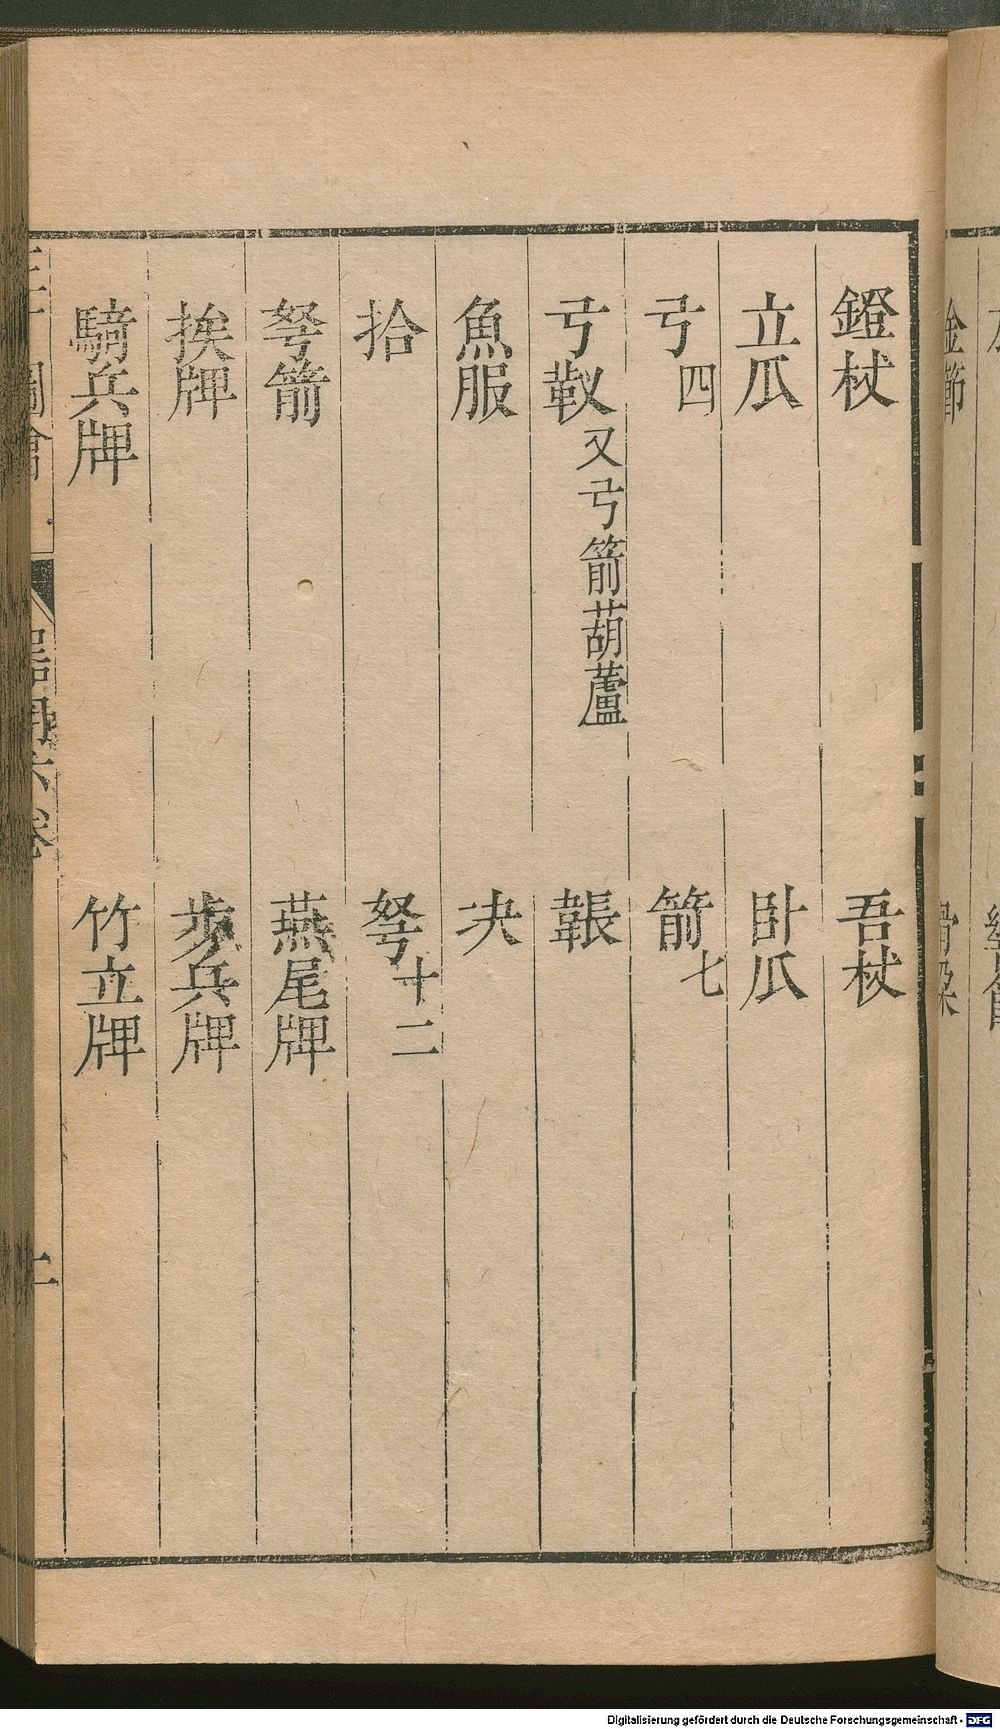 鐙杖　吾杖
立瓜　卧瓜
弓四　箭七
弓靫又弓箭葫蘆　韔
魚服　決
拾　弩十二
弩箭　燕尾牌
挨牌　步兵牌
騎兵牌　竹立牌
二
Digitalisierung gefördert durch die Deutsche Forschungsgemeinschaft - DFG